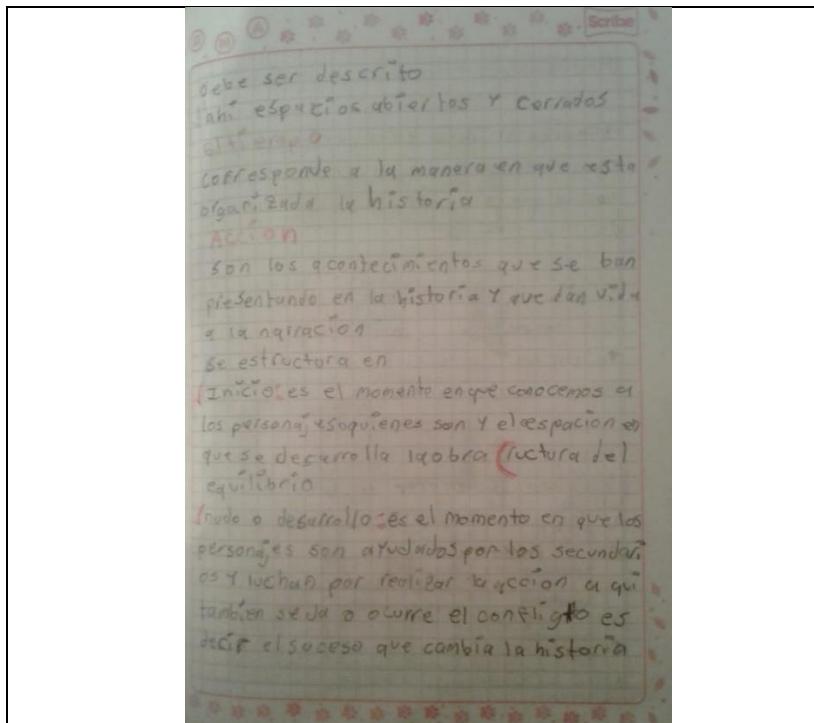 B M A Scribe
debe ser descrito
ahi espacios abiertos y cerrados
el tiempo
corresponde a la manera en que esta
organizada la historia
Acción
son los acontecimientos que se ban
presentando en la historia y que dan vida
a la narracion
se estructora en
Inicio: es el momento enque conocemos a
los personajes o quienes son y el espacion en
que se desarrolla la obra (ructura del
equilibrio
nudo o desarrollo: es el momento en que los
personajes son ayudados por los secundari
os y luchan por realizar la accion a qui
tambien se da o ocurre el confligto es
decir el suceso que cambia la historia